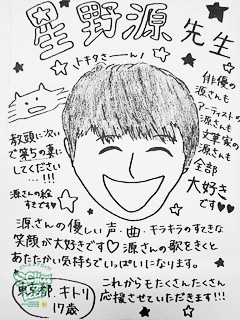 星野源先生
トキタさーん!
俳優の
源さんも
アーティストの
源さんも
文筆家の
源さんも
全部
大好き
です♥♥
教頭に次い
で第5の妻に
してください
…!!!
源さんの絵
すきです♡
源さんの優しい声・曲・キラキラのすてきな
笑顔が大好きです♡源さんの歌をきくと
あたたかい気持ちでいっぱいになります。
東京都 キトリ
17歳
これからもたくさんたくさん
応援させていただきます!!!